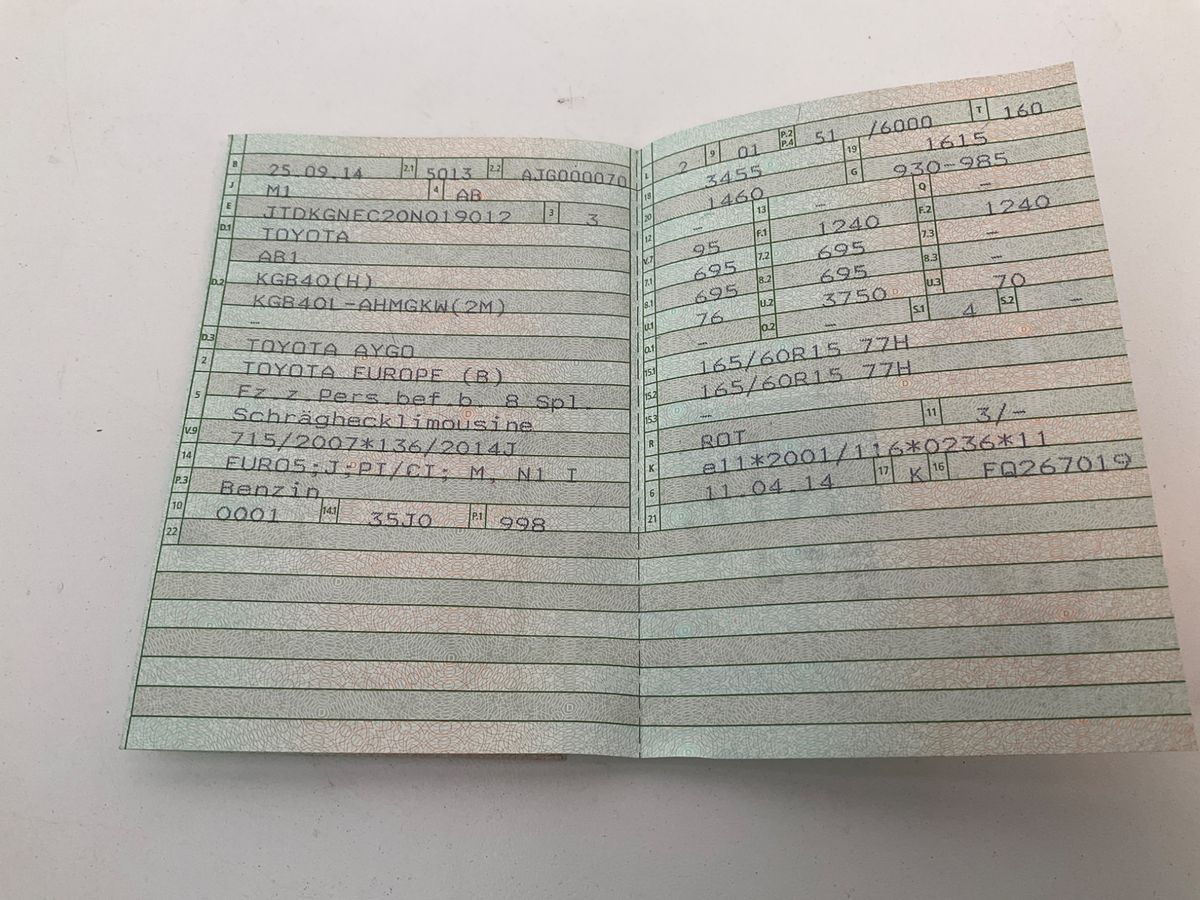 B 25.09.14 2.1 5013 2.2 AJG000070
J M1 4 AB
E JTDKGNEC20N019012 3 3
D.1 TOYOTA
D.2 AB1
KGB40(H)
KGB40L-AHMGKW(2M)
–
D.3 TOYOTA AYGO
2 TOYOTA EUROPE (B)
5 Fz.z.Pers.bef.b. 8 Spl.
Schräghecklimousine
V.9 715/2007*136/2014J
14 EURO5;J;PI/CI; M, N1 I
P.3 Benzin
10 0001 14.1 35J0 P.1 998
22
L 2 9 01 P.2 P.4 51 /6000 T 160
18 3455 19 1615
20 1460 G 930-985
12 – 13 – Q –
V.7 95 F.1 1240 F.2 1240
7.1 695 7.2 695 7.3 –
8.1 695 8.2 695 8.3 –
U.1 76 U.2 3750 U.3 70
O.1 – O.2 – S.1 4 S.2 –
15.1 165/60R15 77H
15.2 165/60R15 77H
15.3 –
R ROT 11 3/–
K e11*2001/116*0236*11
6 11.04.14 17 K 16 FQ267019
21